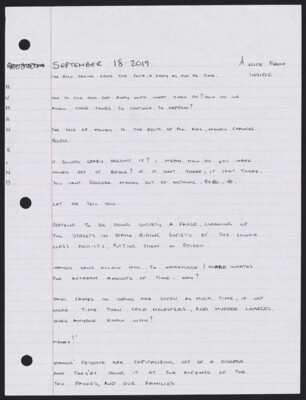 SEPTEMBER 18 · 2019
A VOICE FROM
INSIDE
THE RICH TAKING FROM THE POOR, A STORY AS OLD AS TIME.
HOW IS THE RICH GET AWAY WITH WHAT THEY DO? HOW DO WE
ALLOW THESE THINGS TO CONTINUE TO HAPPEN?
THE LOVE OF MONEY IS THE ROOT OF ALL EVIL, MONEY CHANGES
PEOPLE.
IT SOUNDS CRAZY DOESN'T IT? I MEAN, HOW DO YOU MAKE
MONEY OFF OF BEING? IF IT ISN'T THERE, IT ISN'T THERE.
YOU CAN'T PRODUCE MONEY OUT OF NOTHING, ZERO, 0.
LET ME TELL YOU
PRETEND TO BE DOING SOCIETY A FAVOR. CLEANING UP
THE STREETS IN IDAHO RIDING SOCIETY OF THE LOWER
CLASS ADDICTS, PUTTING THEM IN PRISON
IDAHO'S LAWS ALLOW THEM TO WAREHOUSE / INMATES
FOR EXTREME AMOUNTS OF TIME. WHY?
DRUG CRIMES IN IDAHO ARE GIVEN AS MUCH TIME, IF NOT
MORE TIME THAN CHILD MOLESTERS, AND MURDER CHARGES,
DOES ANYONE KNOW WHY?
MONEY!!
IDAHO'S PRISONS ARE CAPITALIZING OFF OF A DISEASE
AND THEY'RE DOING IT AT THE EXPENSE OF THE
TAX PAYERS, AND OUR FAMILIES
H
U
M
A
N
K
I
N
D